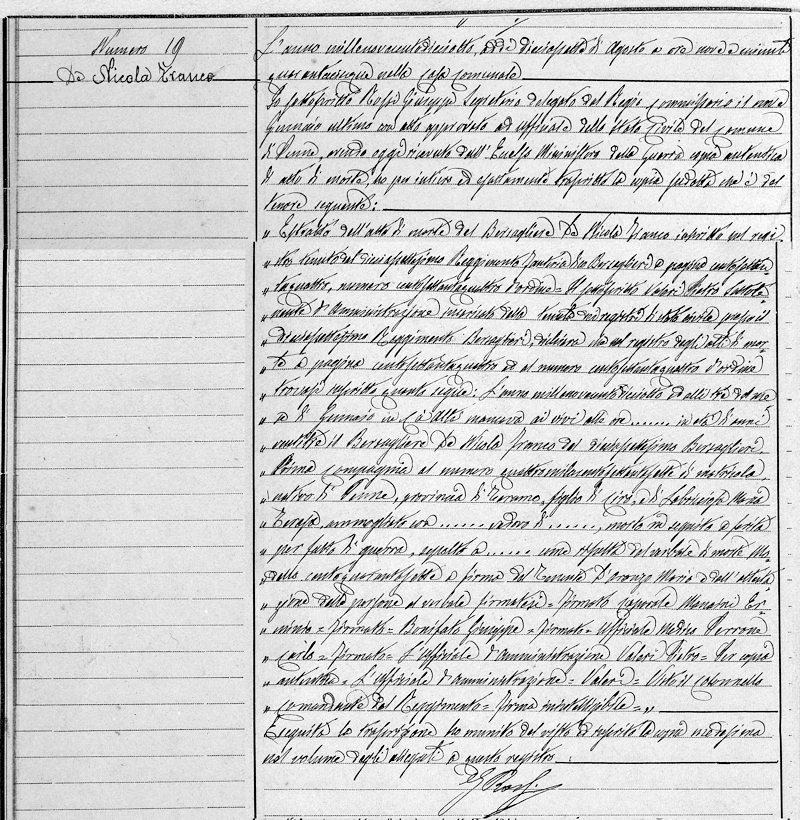 Numero 19
De Nicola Franco
L'anno millenovecentodiciotto, addì diciassette di Agosto a ore nove e minuti
quarantacinque nella casa comunale
Io sottoscritto Rossi Giuseppe Segretario delegato dal Regio Commissario il
Gennaio ultimo con atto approvato ad ufficiale dello Stato Civile del Comune
di Penne, avendo oggi ricevuto dall' Ministero della Guerra copia autentica
di atto di morte, ho per intiero ed esattamente trascritto la copia suddetta che è del
tenore seguente:
" Estratto dell'atto di morte del Bersagliere De Nicola Franco inscritto nel regi-
" stro tenuto dal diciassettesimo Reggimento Fanteria Bersaglieri a pagina centosettan-
" taquattro, numero centosettantaquattro d'ordine = Il sottoscritto Valeri Pietro Sottote-
" nente d'Amministrazione incaricato della tenuta dei registri di stato civile presso il
" diciassettesimo Reggimento Bersaglieri, dichiara che nel registro degli atti di mor-
" te a pagina centosettantaquattro ed al numero centosettantaquattro d'ordine
" trovasi inscritto quanto segue: L'anno millenovecentodiciotto ed alli tre del me-
" se di Gennaio in mancava ai vivi alle ore ........ in età di anni
" ventitre il Bersagliere De Nicola Franco del diciassettesimo Bersaglieri,
" Prima Compagnia al numero di matricola,
" nativo di Penne, provincia di Teramo, figlio di Ciro, e di Labricciosa Maria
" Teresa, ammogliato con ...... vedovo di ......, morto in seguito a ferita
" per fatto di guerra, sepolto a ...... come risulta dal verbale di morte Mo-
" dello centoquarantasette a firma del Tenente D'Oronzo Mario e dell'attesta-
" zione delle persone al verbale firmatesi = Firmato Caporale Mancini Er-
" minio = Firmato = Bonifato Giuseppe = Firmato = Ufficiale Medico Perrone
" Carlo = Firmato = L'Ufficiale d'amministrazione Valeri Pietro = Per copia
" autentica = L'Ufficiale d'amministrazione = Valeri = Visto il Colonnello
" Comandante del Reggimento = Firma inintelligibile = "
Eseguita la trascrizione ho munito del visto ed inserito la copia medesima
nel volume degli allegati a questo registro.
G Rossi